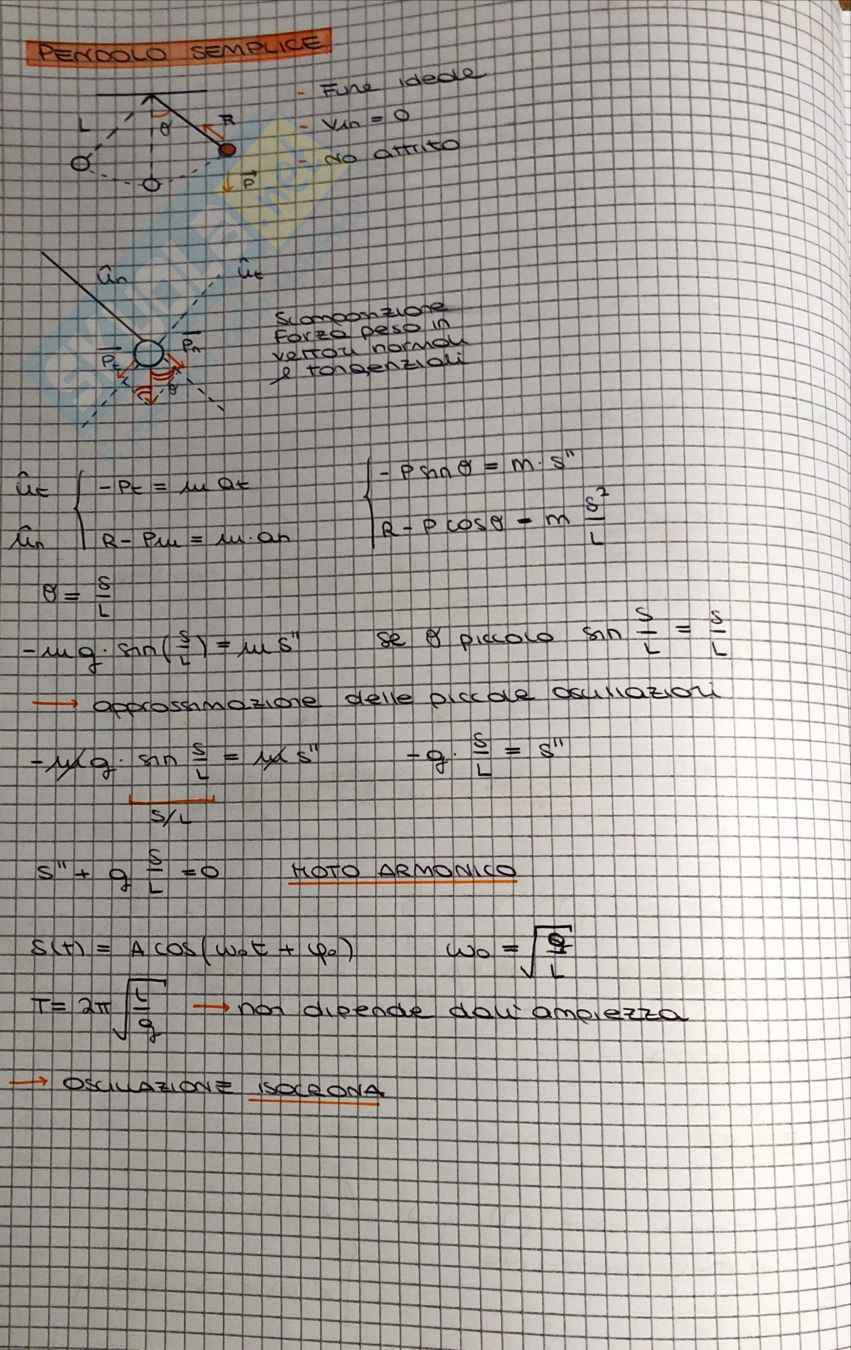 PENDOLO SEMPLICE
- Fune ideale
- Vin = 0
- no attrito
L θ R
P
ûn ût
Pt Pn
θ
Scomposizione
Forza peso in
vettori normali
e tangenziali
ût { -Pt = m at { -P sin θ = m · s"
ûn R - Pn = m · an R - P cos θ = m s²/L
θ = s/L
-mg · sin(s/L) = m s" se θ piccolo sin s/L = s/L
→ approssimazione delle piccole oscillazioni
-mg · sin s/L = m s" -g · s/L = s"
s/L
s" + g s/L = 0 MOTO ARMONICO
s(t) = A cos(ω₀t + φ₀) ω₀ = √g/L
T = 2π √L/g → non dipende dall'ampiezza
→ OSCILLAZIONE ISOCRONA
SKUOLA.net